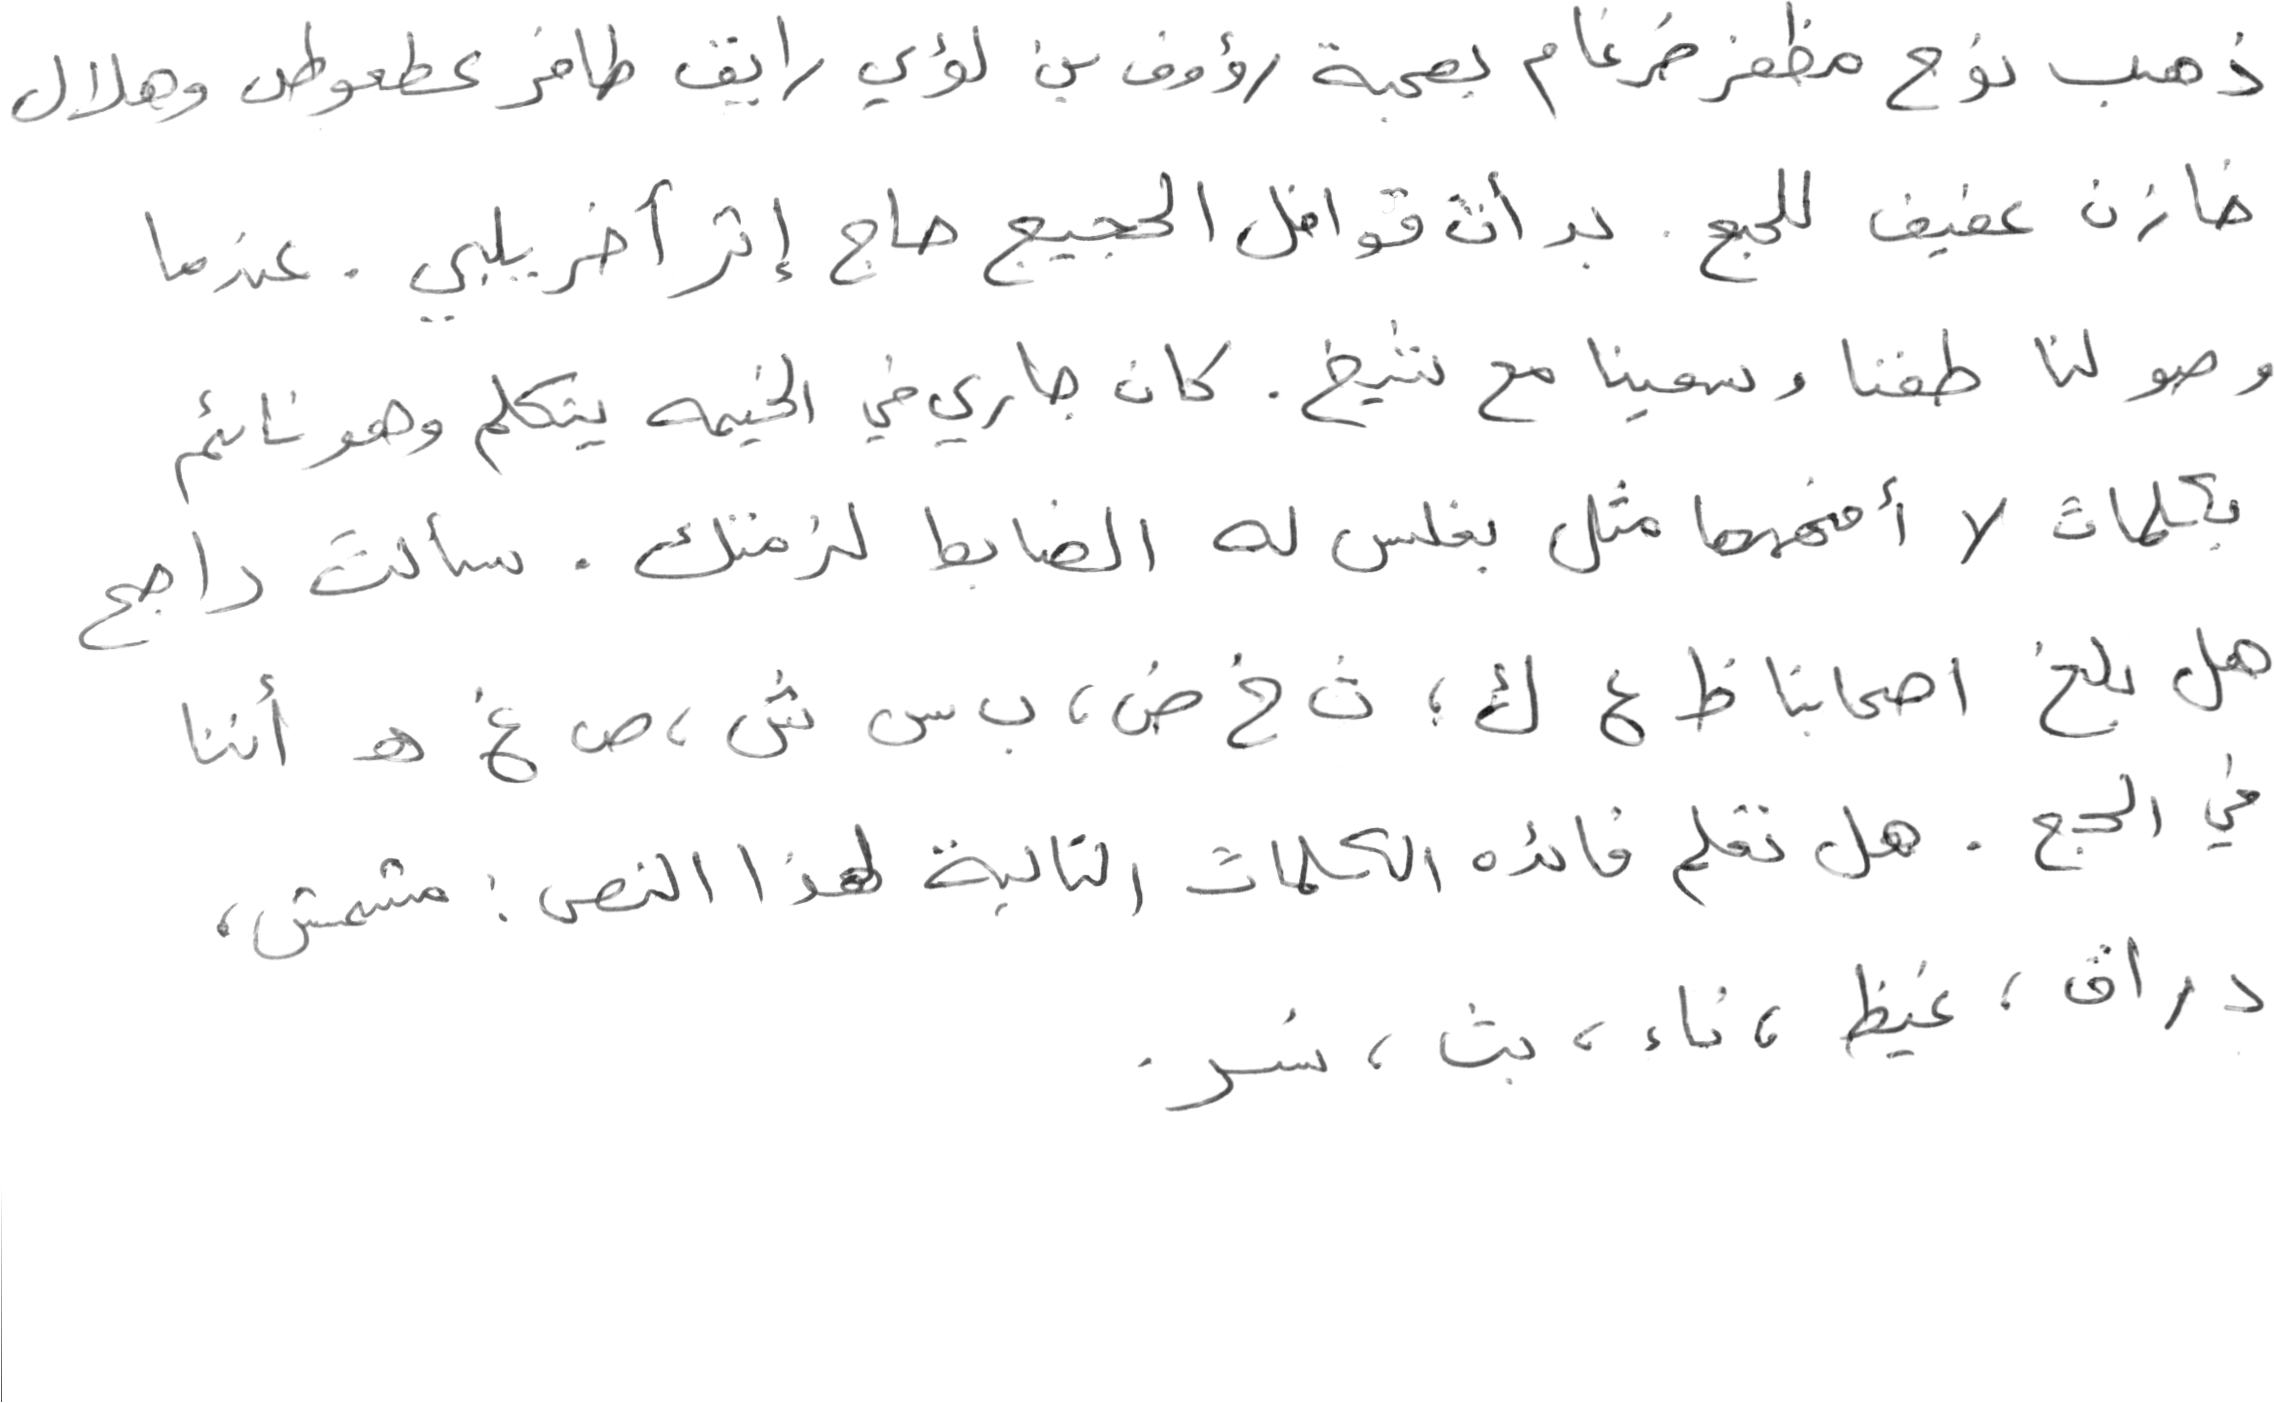 ذهب نوح مظفر ضرغام بصحبة رؤوف بن لؤي رايق ظافر عطعوط وهلال
خازن عفيف للحج . بدأت قوافل الحجيج حاج إثر آخر يلبي . عندما
وصولنا طفنا وسعينا مع شيخ . كان جاري في الخيمه يتكلم وهو نائم
بكلمات لا أفهمها مثل بغلس له الضابط لزمتك . سألت راجح
هل بلغ اصحابنا ظ ع ك ، ث خ ض ، ب س ش ، ص غ هـ أننا
في الحج . هل تعلم فائده الكلمات التالية لهذا النص : مشمش ،
دراق ، غيظ ، ناء ، بث ، نسر .